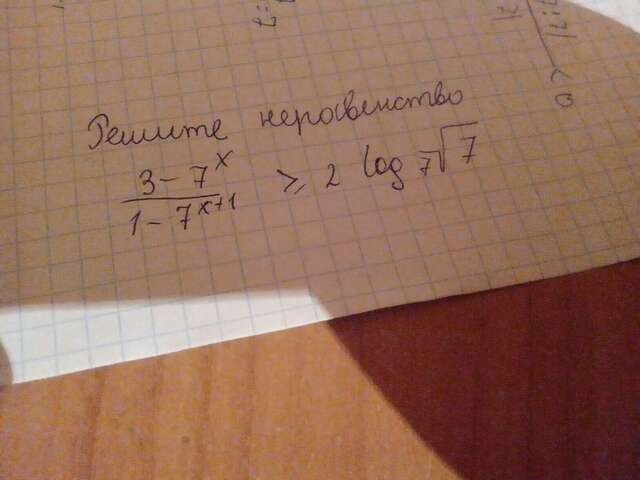 Решите неравенство
3 - 7^x / 1 - 7^x+1 ≥ 2 log 7 √7